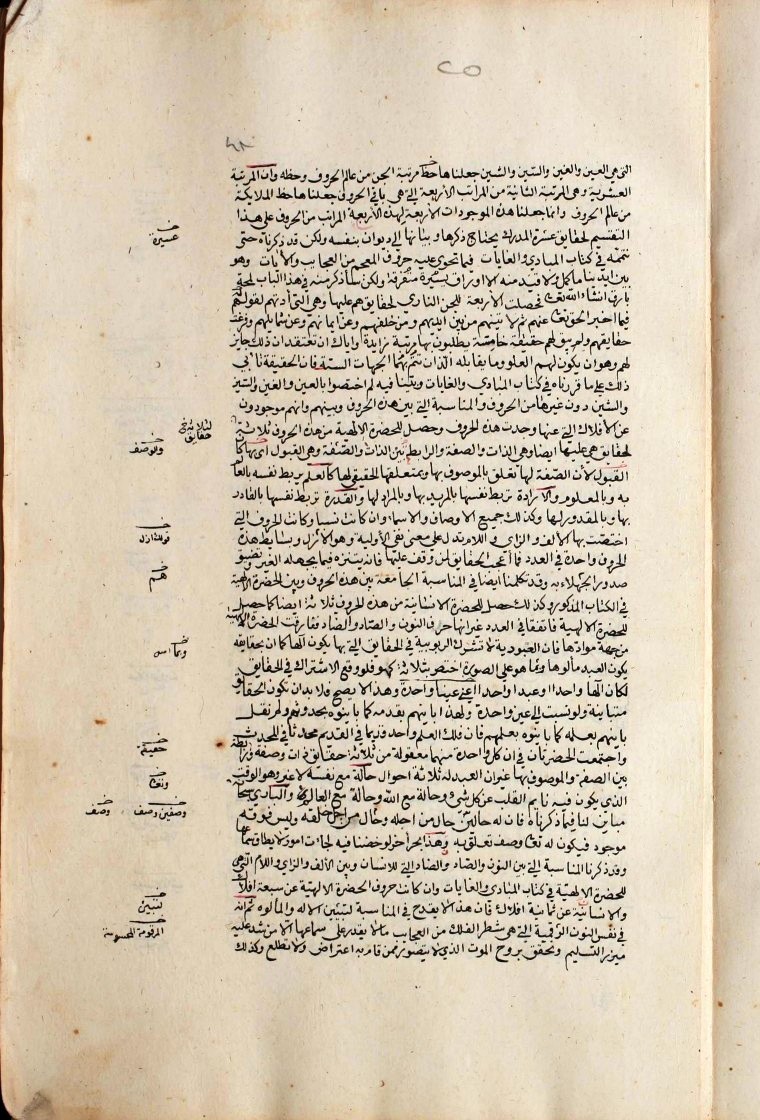 التى هى العين والغين والسّين والشين جعلناها حظ مرتبة الجن من عالم الحروف وحظه وان المرتبة
العشرية وهى المرتبة الثانية من المراتب الاربعة التى هى باقى الحروف جعلناها حظ الملايكة
من عالم الحروف وانما جعلنا هذه الموجودات الاربعة لهذه الاربعة المراتب من الحروف على هذا
التقسيم لحقايق عسرة المدرك يحتاج ذكرها وبيانها الى ديوان بنفسه ولكن قد ذكرناه حتى
نتمه فى كتاب المبادى والغايات فيما تحوى عليه حروف المعجم من العجايب والايات وهو
بين ايدينا ما كمل ولا قيد منه الا اوراق يسيرة متفرقة ولكن ساذكر منه فى هذا الباب لمحة
بارق انشاء الله تعا فحصلت الاربعة للجن النارى لحقايق هم عليها وهى التى ادتهم لقولهم
فيما اخبر الحق تعا عنهم ثم لاتينهم من بين ايديهم ومن خلفهم وعن ايمانهم وعن شمايلهم وفرغت
حقايقهم ولم يبق لهم حقيقة خاصة يطلبون بها مرتبة زايدة واياك ان تعتقد ان ذلك جايز
لهم وهو ان يكون لهم العلو وما يقابله الذان تتم بهما الجهات الستة فان الحقيقة تابى
ذلك على ما قررناه فى كتاب المبادى والغايات وبينا فيه لم اختصوا بالعين والغين والسين
والشين دون غيرها من الحروف والمناسبة التى بين هذه الحروف وبينهم وانهم موجودون
عن الافلاك التى عنها وجدت هذه الحروف وحصل للحضرة الالهية من هذه الحروف ثلاثة
لحقايق هى عليها ايضا وهى الذات والصفة والرابط بين الذات والصفة وهى القبول اى بها كان
القبول لان الصفة لها تعلق بالموصوف بها وبمتعلقها الحقيقى لها كالعلم يربط نفسه بالعالم
به وبالمعلوم والارادة تربط نفسها بالمريد بها وبالمراد لها والقدرة تربط نفسها بالقادر
بها وبالمقدور لها وكذلك جميع الاوصاف والاسماء وان كانت نسبا وكانت الحروف التى
اختصت بها الالف والزاى واللام تدل على معنى نفى الاولية وهو الازل وبسايط هذه
الحروف واحدة فى العدد فما اعجب الحقايق لمن وقف عليها فانه يتنزه فيما يجهله الغير وتضيق
صدور الجهلاء به وقد تكلمنا ايضا فى المناسبة الجامعة بين هذه الحروف وبين الحضرة الالهية
فى الكتاب المذكور وكذلك حصل للحضرة الانسانية من هذه الحروف ثلاثة ايضا كما حصل
للحضرة الالهية فاتفقا فى العدد غير انها حرف النون والصاد والضاد ففارقت الحضرة الالهية
من جهة موادها فان العبودية لا تشرك الربوبية فى الحقايق التى بها يكون الها كما ان بحقايقه
يكون العبد مالوها وبما هو على الصورة اختص بثلاثة كهو فلو وقع الاشتراك فى الحقايق
لكان الها واحدا او عبدا واحدا اعنى عينا واحدة وهذا لا يصح فلا بد ان تكون الحقايق
متباينة ولو نسبت الى عين واحدة ولهذا باينهم بقدمه كما باينوه بحدوثهم ولم نقل
باينهم بعلمه كما باينوه بعلمهم فان فلك العلم واحد قديما فى القديم محدثا فى المحدث
واجتمعت الحضرتان فى ان كل واحدة منهما معقولة من ثلاثة حقايق ذات وصفة ورابطة
بين الصفة والموصوف بها غير ان العبد له ثلاثة احوال حالة مع نفسه لا غير وهو الوقت
الذى يكون فيه نايم القلب عن كل شئ وحالة مع الله وحالة مع العالم والبارى سبحانه
مباين لنا فيما ذكرناه فان له حالين حال من اجله وحال من اجل خلقه وليس فوقه
موجود فيكون له تعا وصف تعلق به وهذا بحر اخر لو خضنا فيه لجاءت امور لا يطاق سماعها
وقد ذكرنا المناسبة التى بين النون والصاد والضاد التى للانسان وبين الالف والزاى واللام التى هى
للحضرة الالهية فى كتاب المبادى والغايات وان كانت حروف الحضرة الالهية عن سبعة افلاك
والانسانية عن ثمانية افلاك فان هذا لا يقدح فى المناسبة لتبيين الاله والمالوه ثم انه
فى نفس النون الرقمية التى هى شطر الفلك من العجايب ما لا يقدر على سماعها الا من شد عليه
ميزر التسليم وتحقق بروح الموت الذى لا يتصور ممن قام به اعتراض ولا تطلع وكذلك
عسيرة
لثلاثة فى حقايق
والوصف
هم
وبما
حقيقة
وتعا
وصفين وصف وصف
لتبين
المرقومة المحسوسة